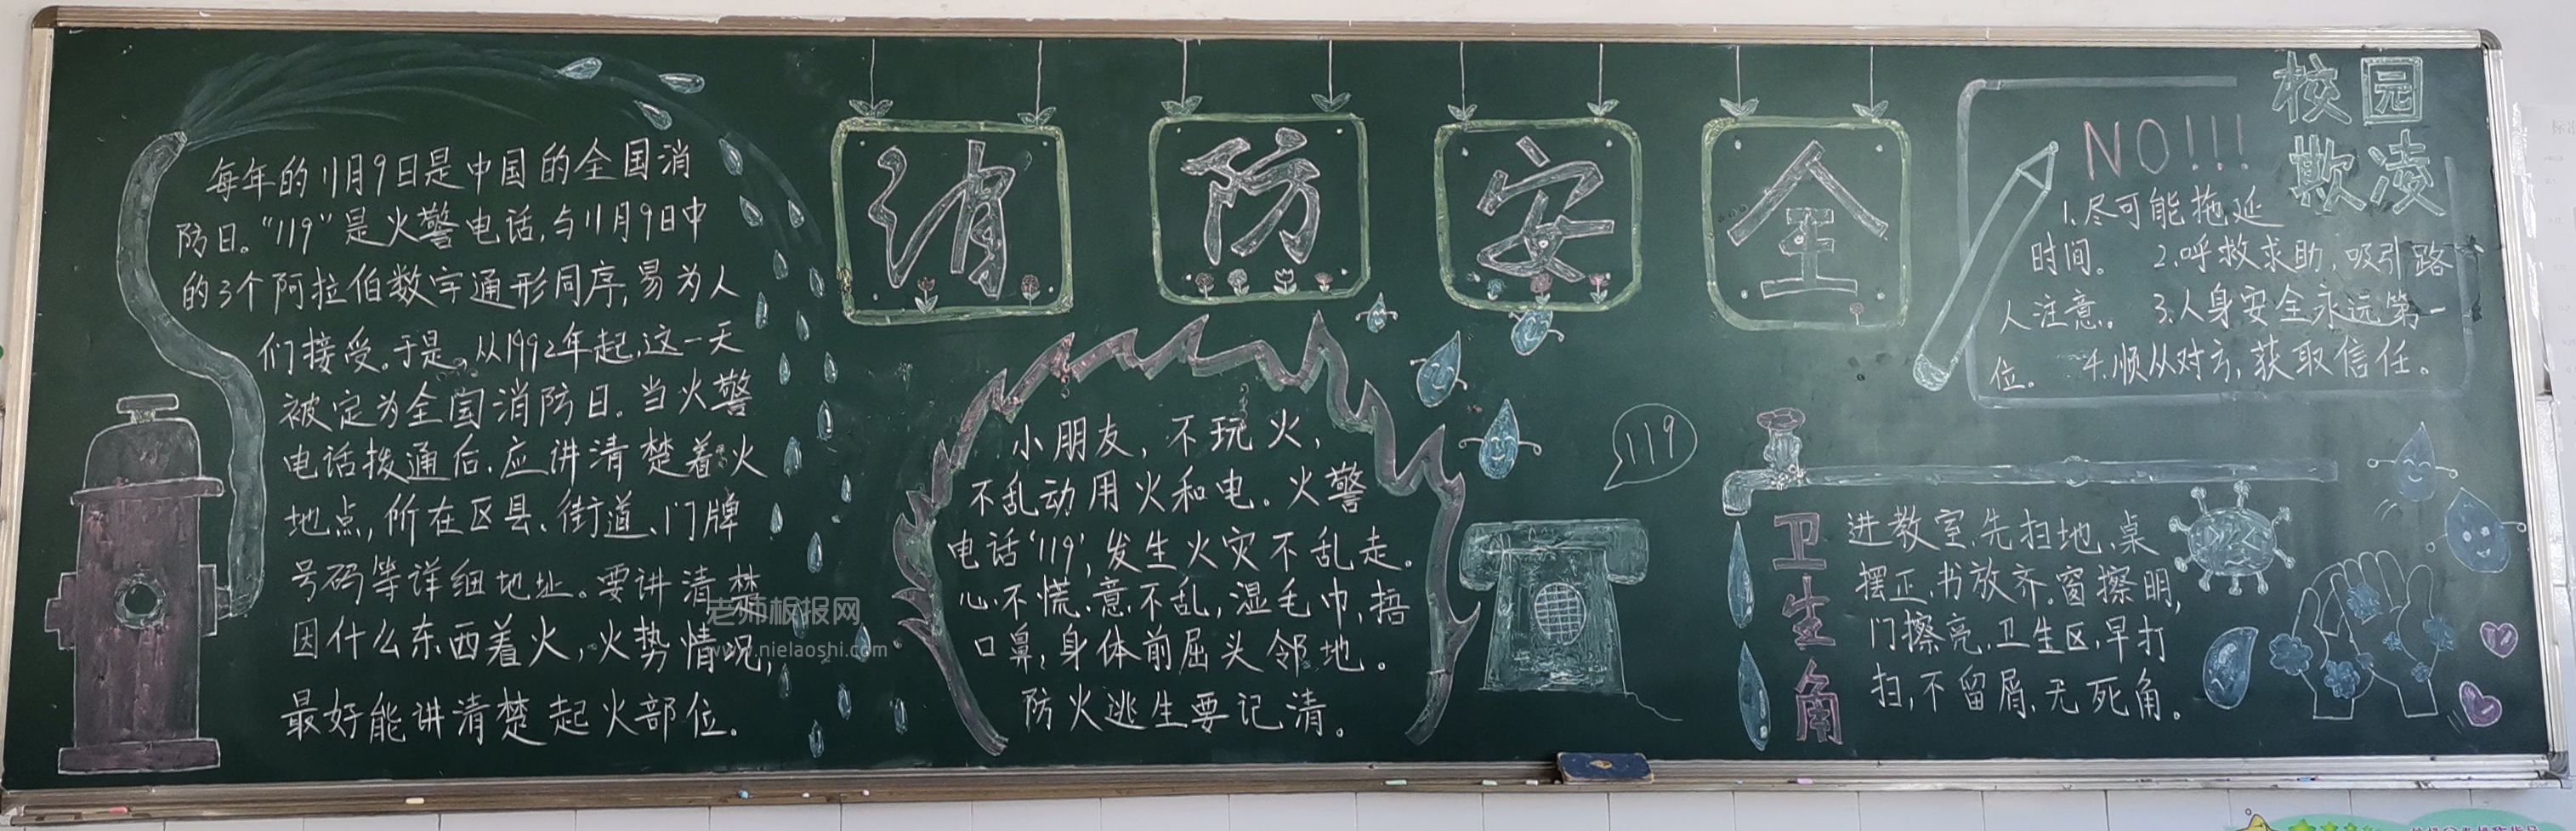 消防安全
每年的11月9日是中国的全国消
防日。“119”是火警电话,与11月9日中
的3个阿拉伯数字通形同序,易为人
们接受。于是。从1992年起,这一天
被定为全国消防日。当火警
电话拨通后,应讲清楚着火
地点,所在区县、街道、门牌
号码等详细地址。要讲清楚
因什么东西着火,火势情况,
最好能讲清楚起火部位。
老师板报网
www.nielaoshi.com
小朋友,不玩火,
不乱动用火和电。火警
电话‘119’,发生火灾不乱走。
心不慌,意不乱,湿毛巾,捂
口鼻,身体前屈头邻地。
防火逃生要记清。
119
校园
欺凌
NO!!!
1.尽可能拖延
时间。 2.呼救求助,吸引路
人注意。 3.人身安全永远第一
位。 4.顺从对方,获取信任。
卫生角
进教室,先扫地,桌
摆正,书放齐。窗擦明,
门擦亮,卫生区,早打
扫,不留屑,无死角。